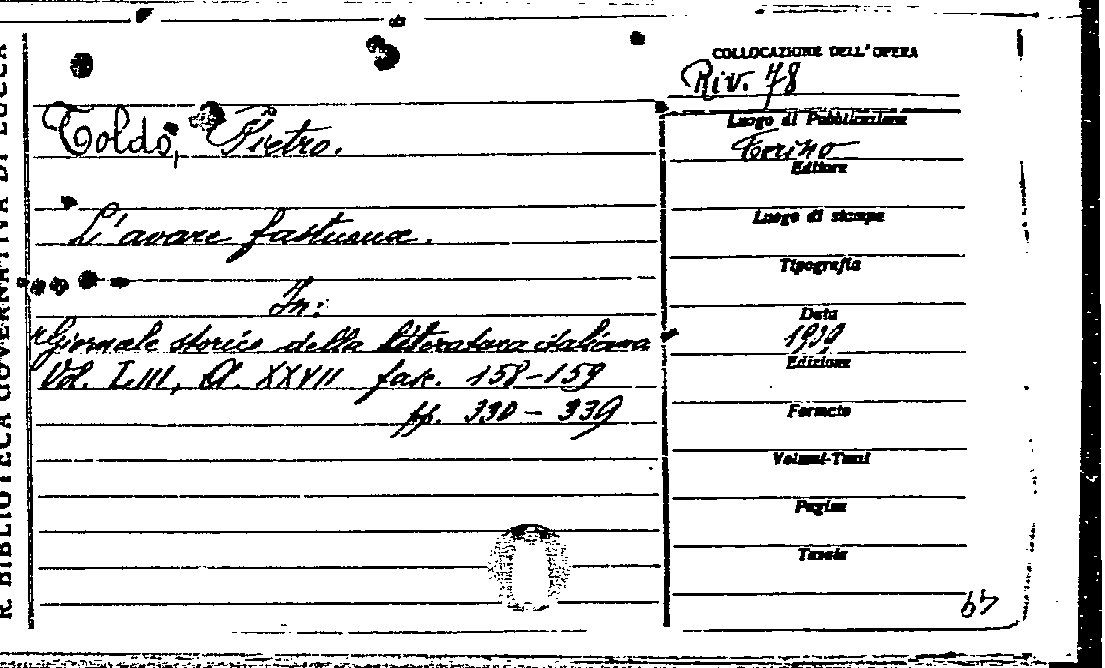 R. BIBLIOTECA GOVERNATIVA DI LUCCA
COLLOCAZIONE DELL'OPERA
Riv. 78
Toldo, Pietro.
Luogo di Pubblicazione
Torino
Editore
L'avare fastueux.
Luogo di stampa
Tipografia
In:
Data
"Giornale storico della letteratura italiana"
Edizione
Vol. LIII, A. XXVII fasc. 158-159
pp. 330-339
Formato
Volumi-Tomi
Pagine
Tavole
67